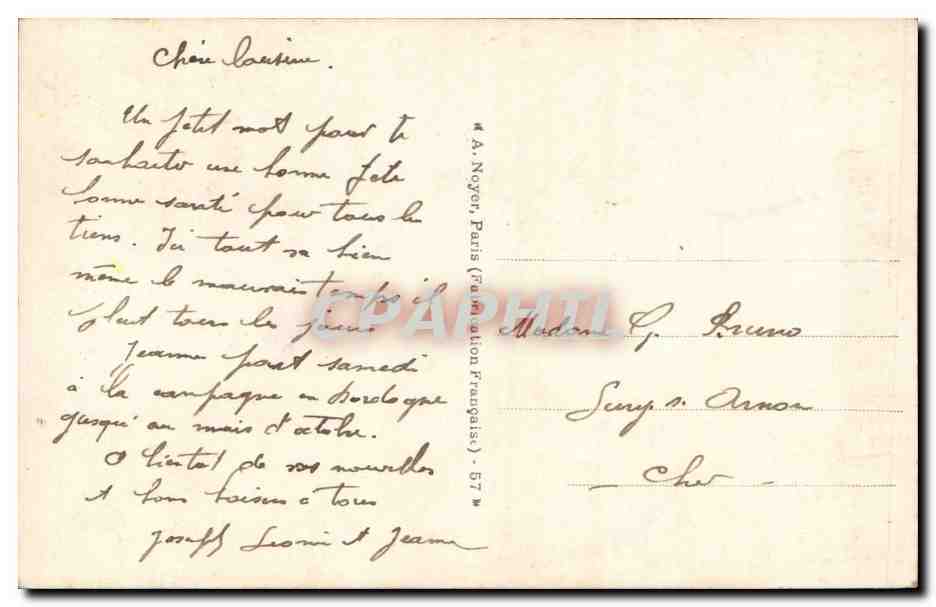 Chère Cousine.
Un petit mot pour te
souhaiter une bonne fête
bonne santé pour tous les
tiens. Ici tout va bien
même le mauvais temps il
plut tous les jours
Jeanne part samedi
à la campagne en Dordogne
jusqu'au mois d'octobre.
A bientot de vos nouvelles
et bons baisers à tous
Joseph et Jeanne
" A. Noyer, Paris (Fabrication Française) - 57 "
CPAPHIL
Madame G. Bruno
Lury s. Arnon
- Cher -